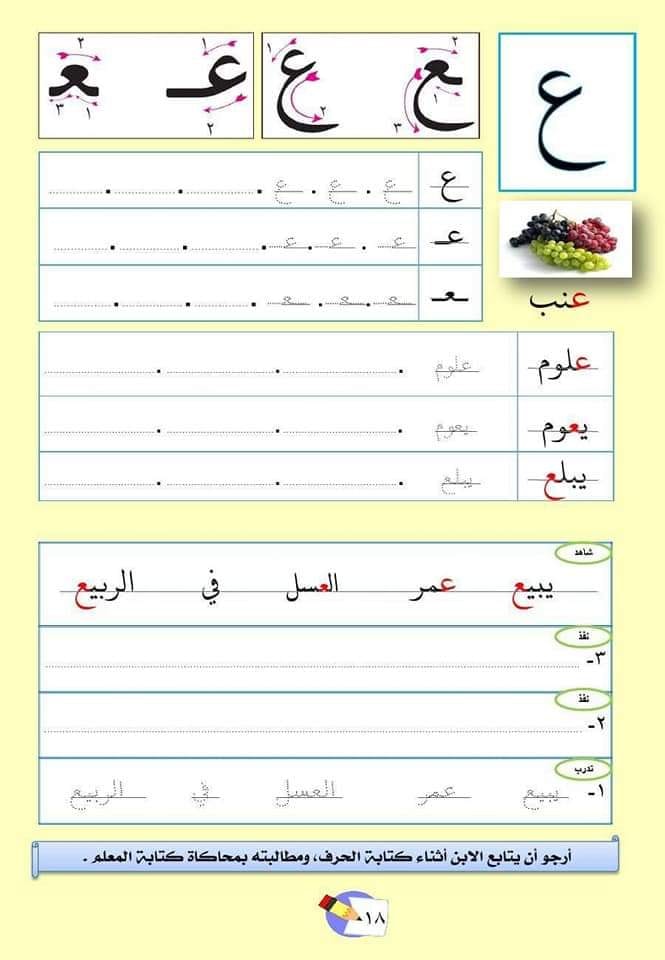 ع
٢ ١ ٣ ١ ٢ ع ع
١ ٢ عـ ٢ ٣ ١ ـعـ
عنب
ع ع . ع . ع .
عـ عـ . عـ . عـ
ـعـ ـعـ . ـعـ . ـعـ
علوم علوم
يعوم يعوم
يبلع يبلع
شاهد
يبيع عمر العسل في الربيع
نفذ
٣-
نفذ
٢-
تدرب
١- يبيع عمر العسل في الربيع
أرجو أن يتابع الابن أثناء كتابة الحرف، ومطالبته بمحاكاة كتابة المعلم .
١٨